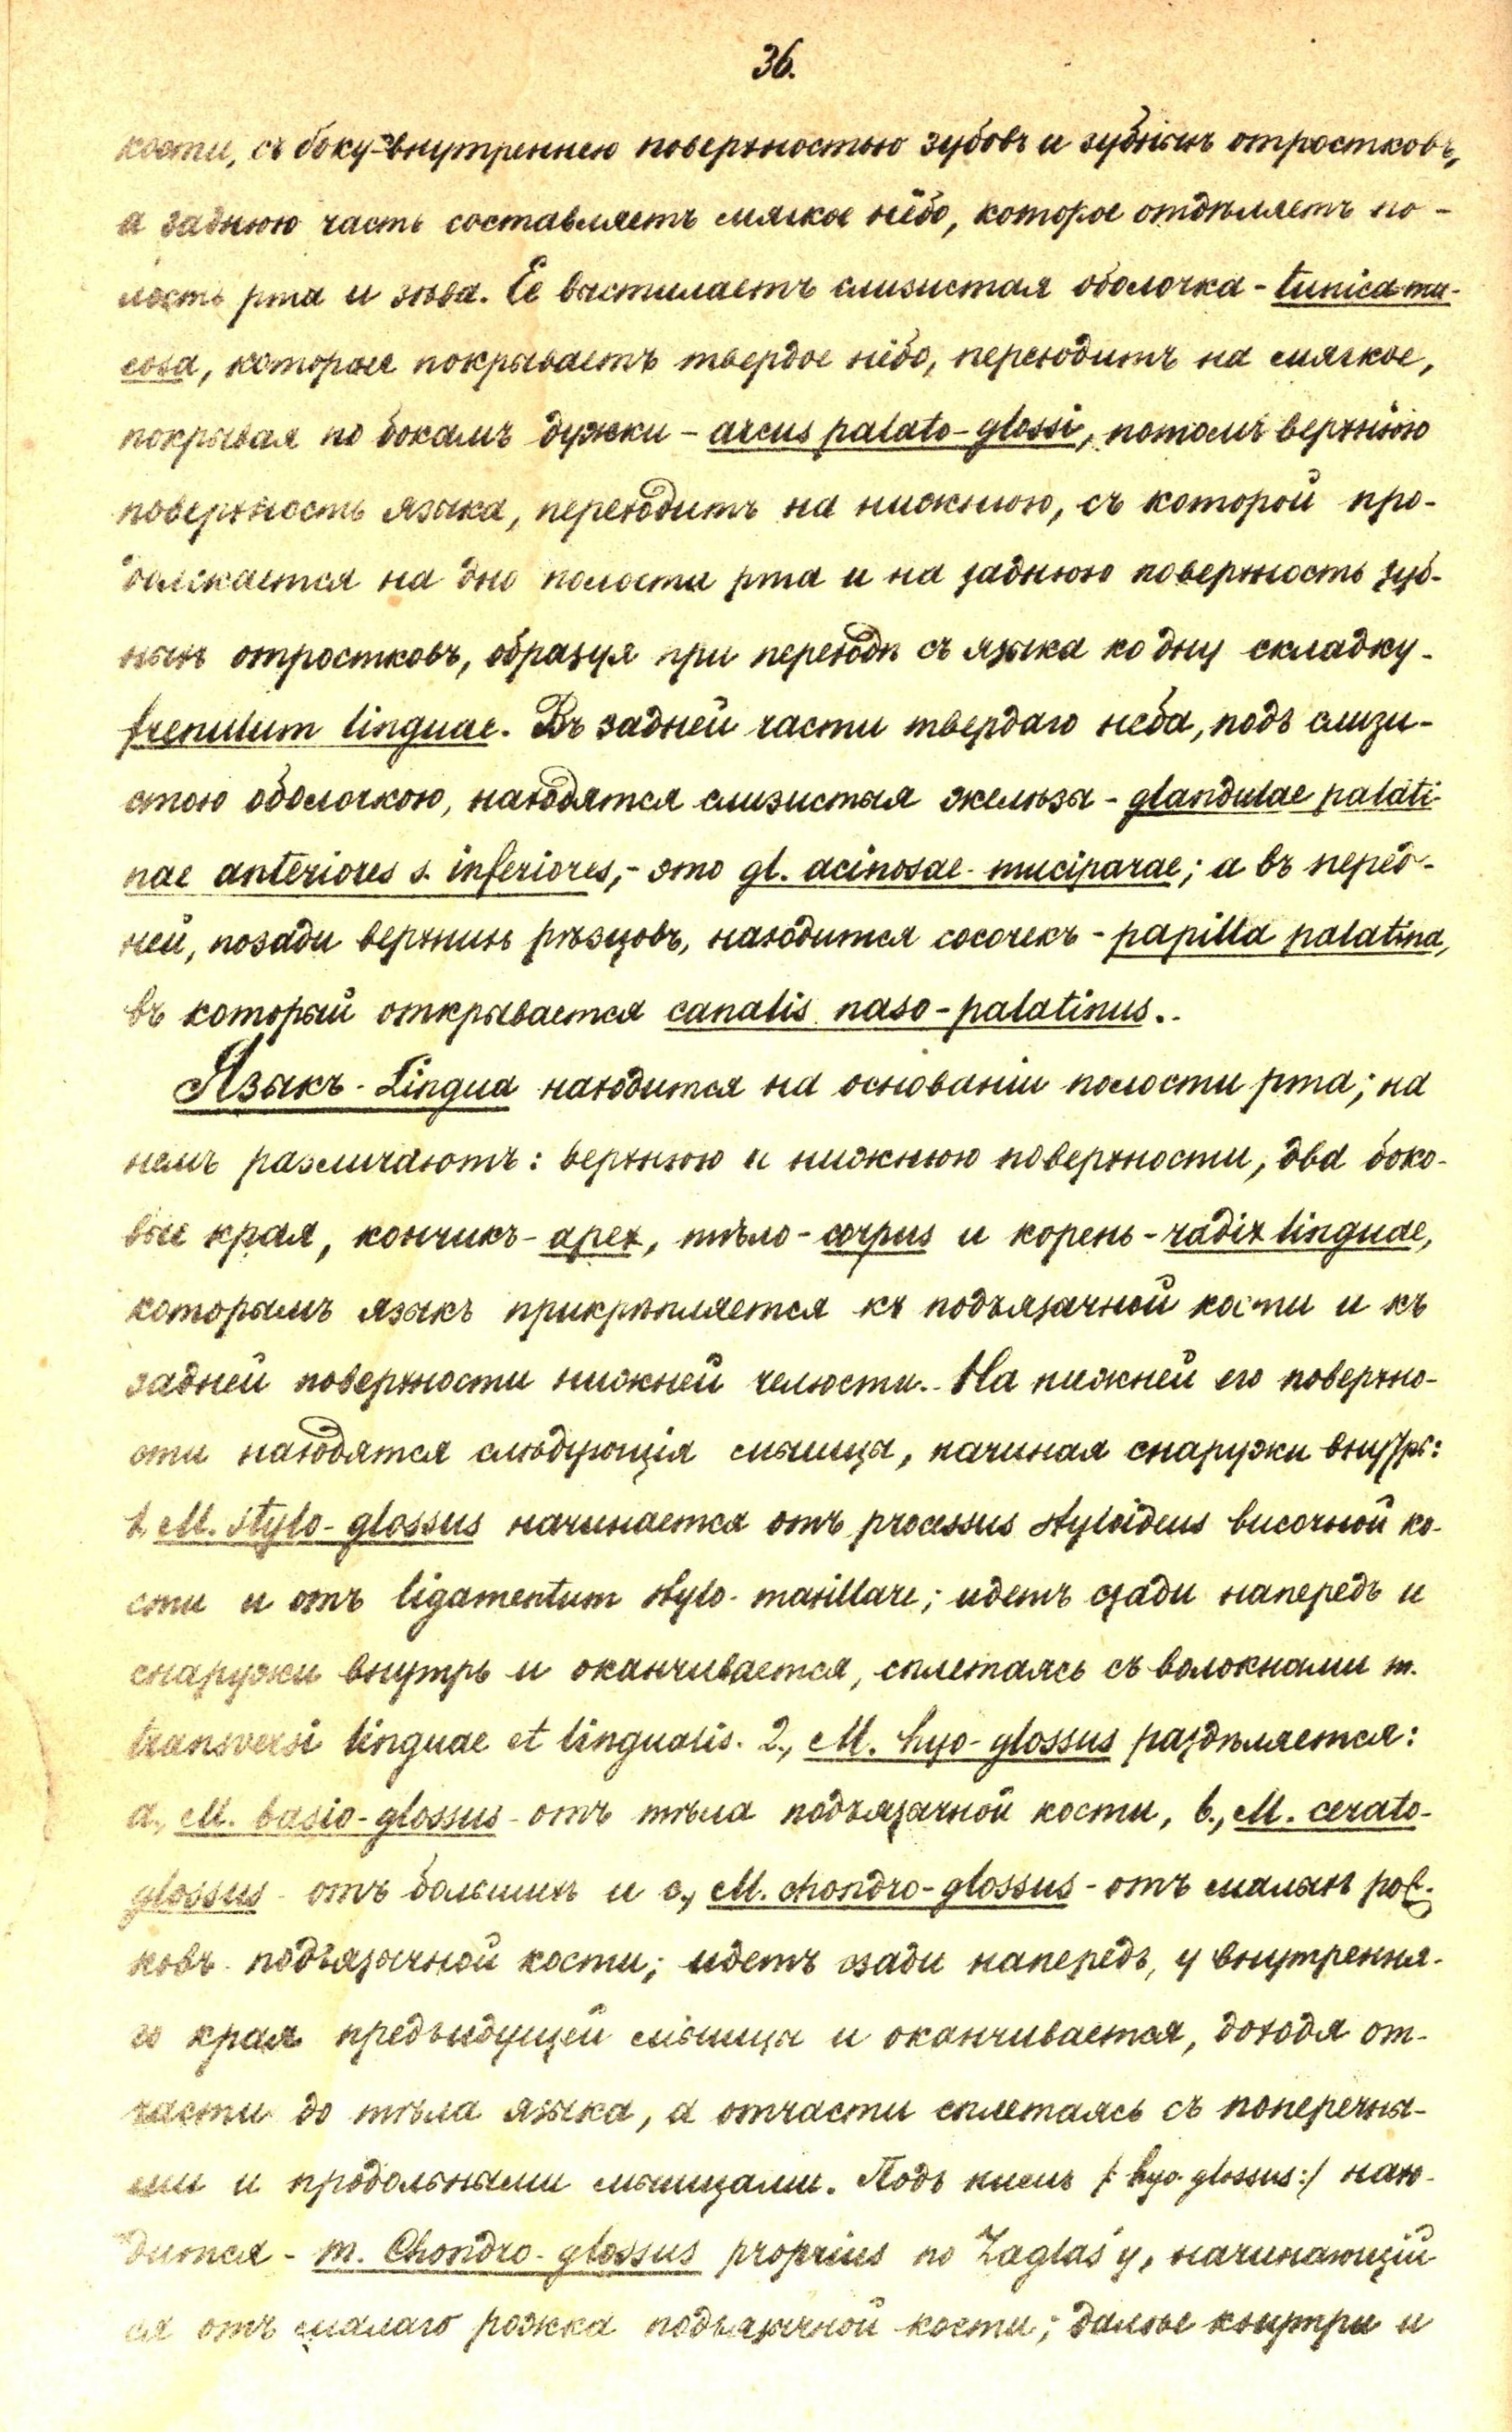 36.
кости, съ боку-внутреннею поверхностью зубовъ и зубныхъ отростковъ,
а заднюю часть составляетъ мягкое нёбо, которое отдѣляетъ по-
лость рта и зѣва. Ее выстилаетъ слизистая оболочка - tunica mu-
cosa, которая покрываетъ твердое нёбо, переходитъ на мягкое,
покрывая по бокамъ дужки - arcus palato-glossi, потомъ верхнюю
поверхность языка, переходитъ на нижнюю, съ которой про-
должается на дно полости рта и на заднюю поверхность зуб-
ныхъ отростковъ, образуя при переходѣ съ языка ко дну складку -
frenulum linguae. Въ задней части твердаго неба, подъ слизи-
стою оболочкою, находятся слизистыя железы - glandulae palati-
nae anteriores s. inferiores, - это gl. acinosae muciparae; а въ перед-
ней, позади верхнихъ рѣзцовъ, находится сосочекъ - papilla palatina,
въ который открывается canalis naso-palatinus.
Языкъ - Lingua находится на основаніи полости рта; на
немъ различаютъ: верхнюю и нижнюю поверхности, два боко-
вые края, кончикъ - apex, тѣло - corpus и корень - radix linguae,
которымъ языкъ прикрѣпляется къ подъязычной кости и къ
задней поверхности нижней челюсти. На нижней его поверхно-
сти находятся слѣдующія мышцы, начиная снаружи внутрь:
1. M. stylo-glossus начинается отъ processus styloideus височной ко-
сти и отъ ligamentum stylo-maxillare; идетъ сзади напередъ и
снаружи внутрь и оканчивается, сплетаясь съ волокнами m.
transversi linguae et lingualis. 2., M. hyo-glossus раздѣляется:
a., M. basio-glossus - отъ тѣла подъязычной кости, b., M. cerato-
glossus - отъ большихъ и c., M. chondro-glossus - отъ малыхъ рож-
ковъ подъязычной кости; идетъ сзади напередъ, у внутрення-
го края предъидущей мышцы и оканчивается, доходя от-
части до тѣла языка, а отчасти сплетаясь съ поперечны-
ми и продольными мышцами. Подъ нимъ /: hyo-glossus :/ нахо-
дится - m. Chondro-glossus proprius по Zaglas'у, начинающій-
ся отъ малаго рожка подъязычной кости; далѣе кнутри и